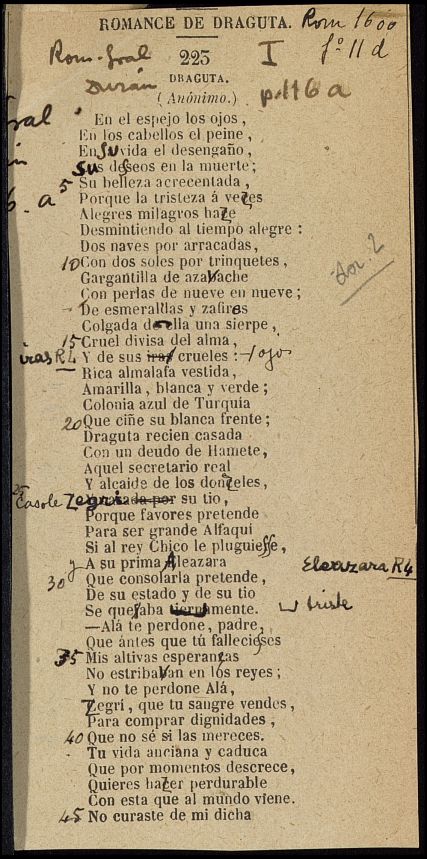 ROMANCE DE DRAGUTA. Rom 1600
fº 11 d
Rom. Gral
223 I
Durán DRAGUTA.
(Anónimo.) p. 116 a
En el espejo los ojos,
En los cabellos el peine,
En su vida el desengaño,
Sus deseos en la muerte;
5 Su belleza acrecentada,
Porque la tristeza á vezes
Alegres milagros haze
Desmintiendo al tiempo alegre:
Dos naves por arracadas,
10 Con dos soles por trinquetes,
Gargantilla de azavache
Con perlas de nueve en nueve;
De esmeraldas y zafiros
Colgada de ella una sierpe,
15 Cruel divisa del alma,
iras R4 Y de sus iras crueles: ojos
Rica almalafa vestida,
Amarilla, blanca y verde;
Colonia azul de Turquía
20 Que ciñe su blanca frente;
Draguta recien casada
Con un deudo de Hamete,
Aquel secretario real
Y alcaide de los donzeles,
25 Casole Zegri su tio,
Porque favores pretende
Para ser grande Alfaquí
Si al rey Chico le pluguiesse,
y A su prima Aleazara Eleazara R4
30 Que consolarla pretende,
De su estado y de su tio
Se quejaba tiernamente. triste
—Alá te perdone, padre,
Que ántes que tú falleciesses
35 Mis altivas esperanzas
No estribaban en los reyes;
Y no te perdone Alá,
Zegrí, que tu sangre vendes,
Para comprar dignidades,
40 Que no sé si las mereces.
Tu vida anciana y caduca
Que por momentos descrece,
Quieres hazer perdurable
Con esta que al mundo viene.
45 No curaste de mi dicha